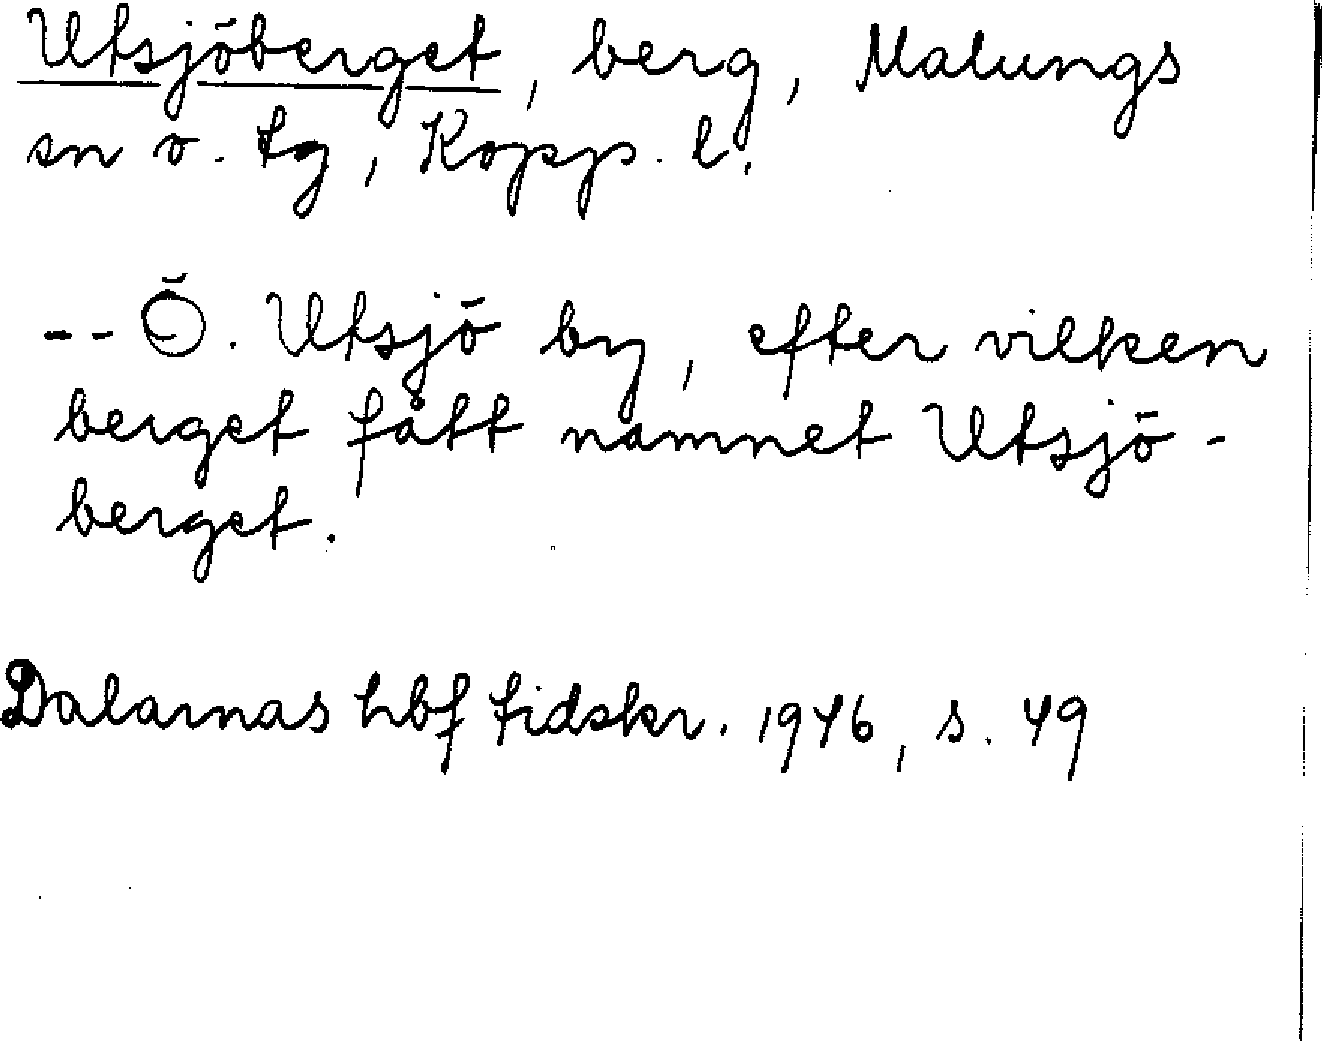 Utsjöberget, berg, Malungs
sn o. tg, Kopp. l.
-- Ö. Utsjö by, efter vilken
berget fått namnet Utsjö-
berget.
Dalarnas hbf tidskr. 1946, s. 49